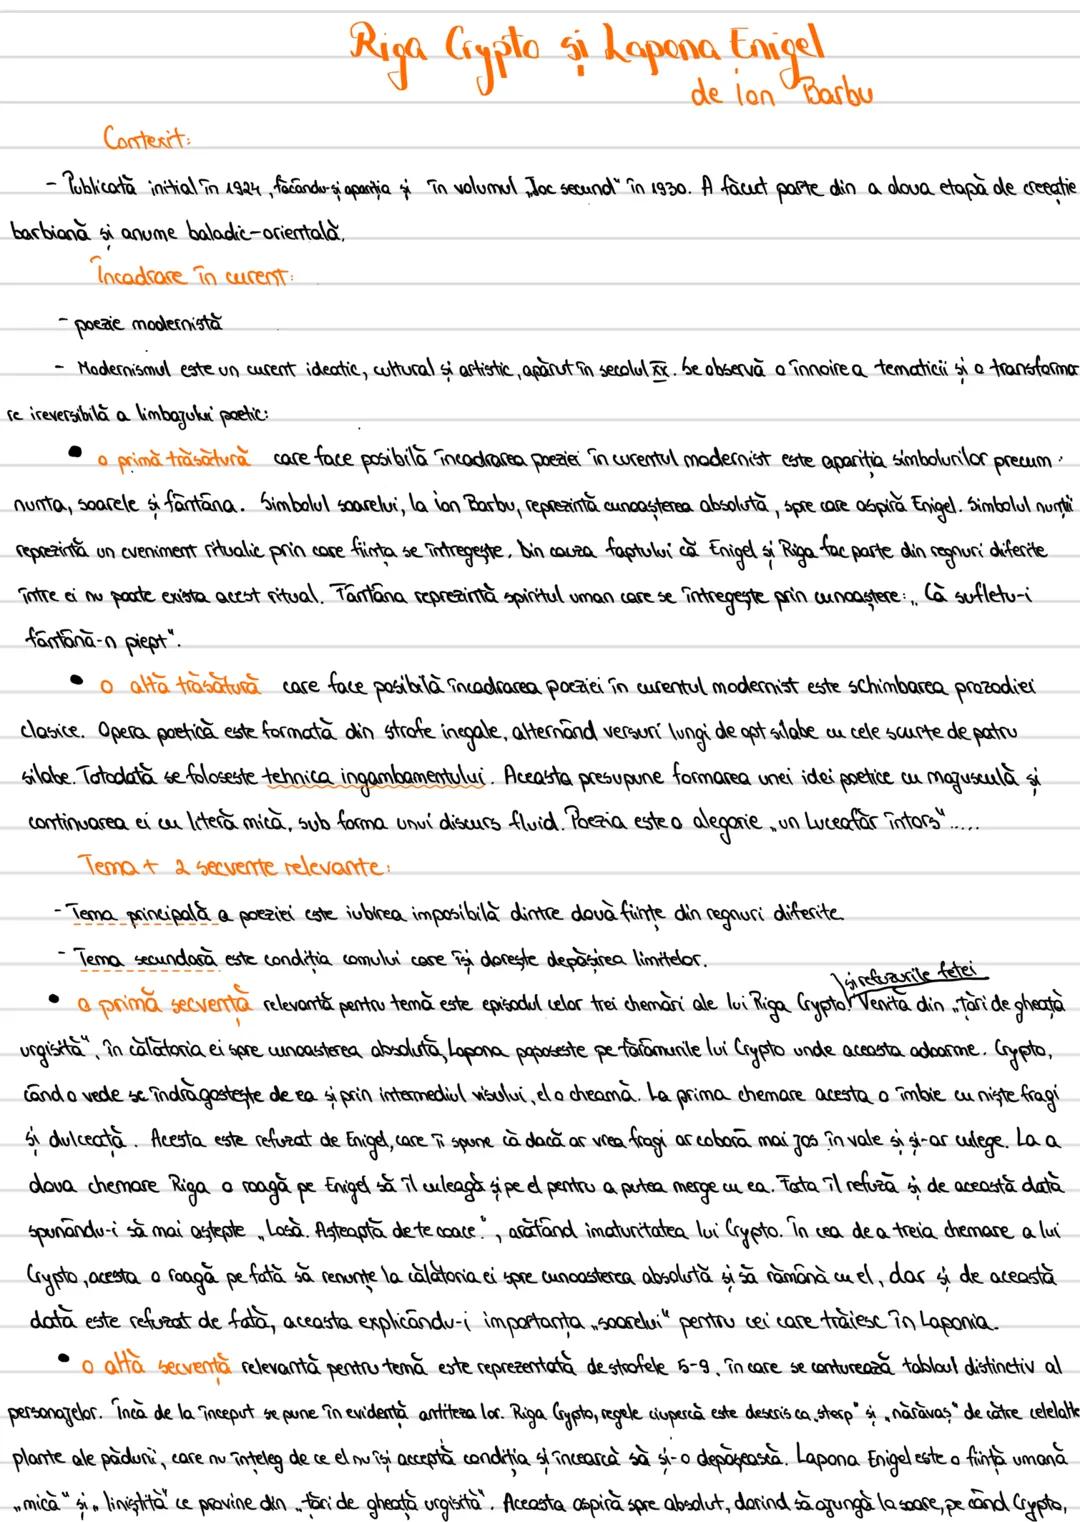 Riga Crypto și Lapona Enigel
de ion Barbu
Context:
- Publicată initial în 1924, făcându-și apariția și în volumul „Joc secund" în 1930. A făcut parte din a doua etapă de creeație
barbiană și anume baladic-orientală.
Încadrare în curent:
- poezie modernistă
- Modernismul este un curent ideatic, cultural și artistic, apărut în secolul XX. Se observă o înnoire a tematicii și o transforma
re ireversibilă a limbajului poetic:
• o primă trăsătură care face posibilă încadrarea poeziei în curentul modernist este apariția simbolurilor precum:
nunta, soarele și fântâna. Simbolul soarelui, la ion Barbu, reprezintă cunoașterea absolută, spre care aspiră Enigel. Simbolul nunții
reprezintă un eveniment ritualic prin care ființa se întregește. Din cauza faptului că Enigel și Riga fac parte din regnuri diferite
între ei nu poate exista acest ritual. Fântâna reprezintă spiritul uman care se întregește prin cunoaștere: „Că sufletu-i
fântână-n piept".
• o altă trăsătură care face posibilă încadrarea poeziei în curentul modernist este schimbarea prozodiei
clasice. Opera poetică este formată din strofe inegale, alternând versuri lungi de opt silabe cu cele scurte de patru
silabe. Totodată se foloseste tehnica ingambamentului. Aceasta presupune formarea unei idei poetice cu majusculă și
continuarea ei cu literă mică, sub forma unui discurs fluid. Poezia este o alegorie „un Luceafăr întors".....
Tema + 2 secvente relevante:
- Tema principală a poeziei este iubirea imposibilă dintre două ființe din regnuri diferite
- Tema secundară este condiția omului care își dorește depășirea limitelor.
și refuzurile fetei
• o primă secvență relevantă pentru temă este episodul celor trei chemări ale lui Riga Crypto. Venită din „țări de gheață
urgisită", în călătoria ei spre cunoasterea absolută, Lapona poposeste pe tărâmurile lui Crypto unde aceasta adoarme. Crypto,
când o vede se îndrăgostește de ea și prin intermediul visului, el o cheamă. La prima chemare acesta o îmbie cu niște fragi
și dulceață. Acesta este refuzat de Enigel, care îi spune că dacă ar vrea fragi ar coborâ mai jos în vale și și-ar culege. La a
doua chemare Riga o roagă pe Enigel să îl culeagă și pe el pentru a putea merge cu ea. Fata îl refuză și de această dată
spunându-i să mai aștepte „Lasă. Așteaptă de te coace.", arătând imaturitatea lui Crypto. În cea de a treia chemare a lui
Crypto, acesta o roagă pe fată să renunțe la călătoria ei spre cunoasterea absolută și să rămână cu el, dar și de această
dată este refuzat de fată, aceasta explicându-i importanța „soarelui" pentru cei care trăiesc în Laponia.
• o altă secvență relevantă pentru temă este reprezentată de strofele 5-9, în care se conturează tabloul distinctiv al
personajelor. Încă de la început se pune în evidență antiteza lor. Riga Crypto, regele ciupercă este descris ca „sterp" și „nărăvaș" de către celelalte
plante ale pădurii, care nu înțeleg de ce el nu își acceptă condiția și încearcă să și-o depășească. Lapona Enigel este o ființă umană
„mică" și „liniștită" ce provine din „țări de gheață urgisită". Aceasta aspiră spre absolut, dorind să ajungă la soare, pe când Crypto,